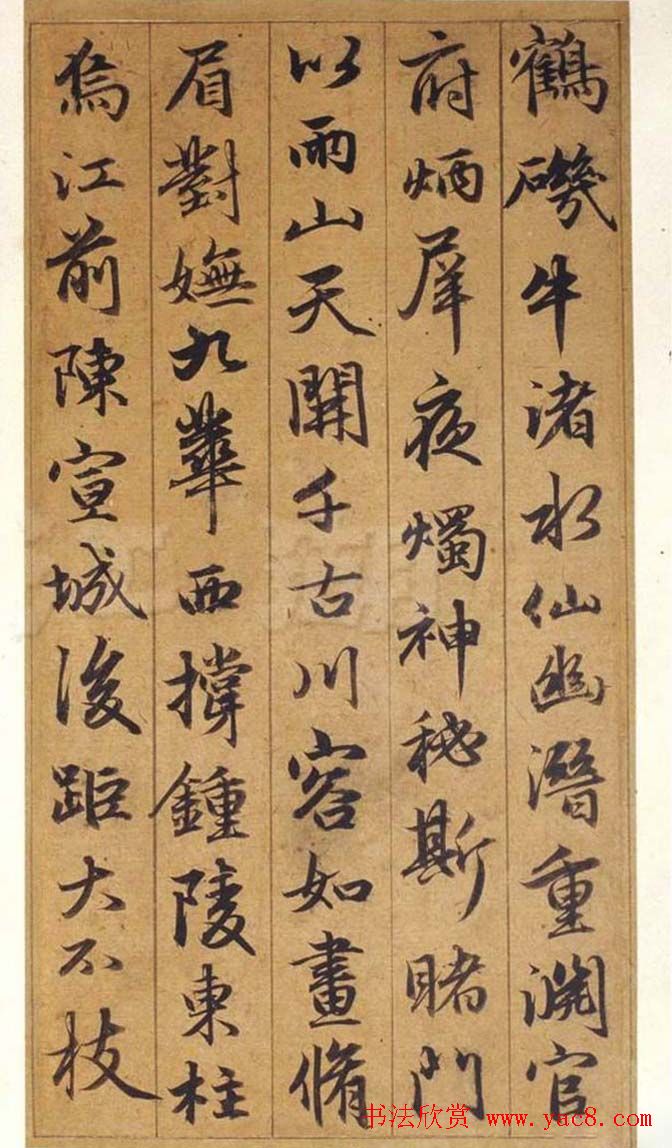 鶴磯牛渚水仙幽潛重淵官
府炳犀夜燭神秘斯睹門
以兩山天開千古川容如畫脩
眉對嫵九華西撐鍾陵東柱
烏江前陳宣城後距大不枝
书法欣赏 www.yac8.com